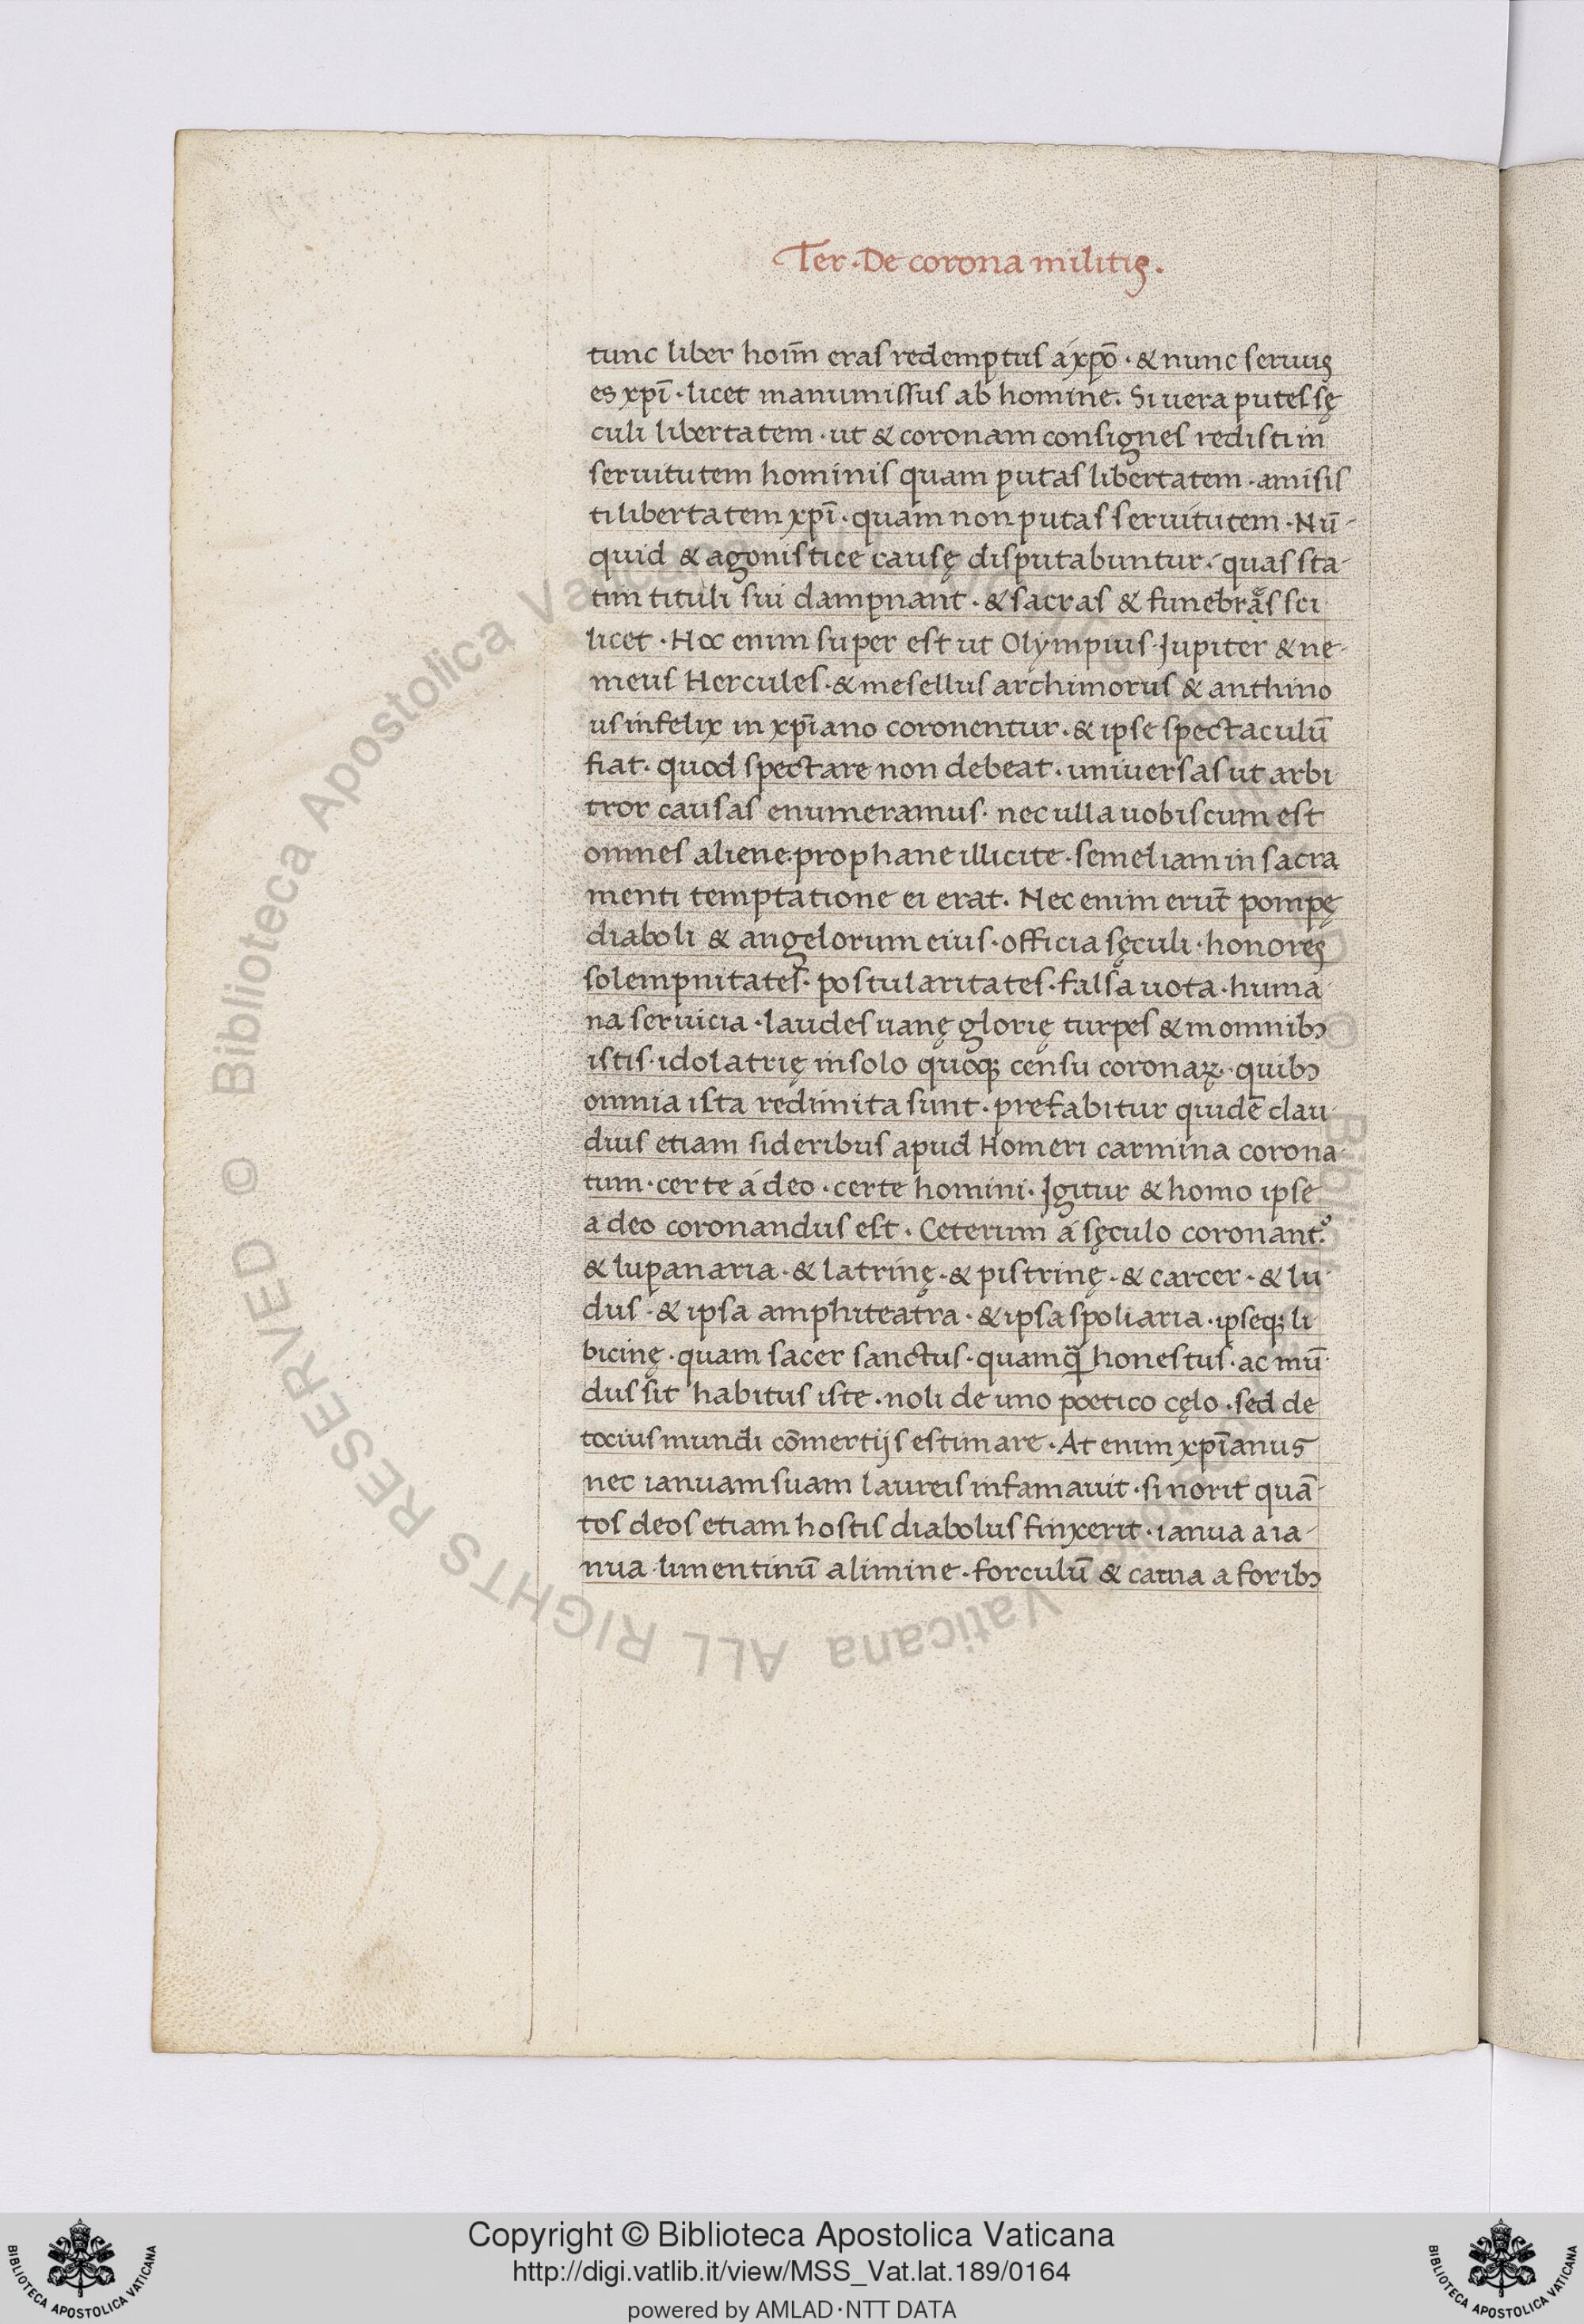 Ter · De corona militis.
tunc liber hoīm eras redemptus á xpō · & nunc seruus
es xpī · licet manumissus ab homine. Si uera putes sę
culi libertatem · ut & coronam consignes redisti in
seruitutem hominis quam putas libertatem · amisis
ti libertatem xpī · quam non putas seruitutem · Nū-
quid & agonistice causę disputabuntur · quas sta-
tim tituli sui dampnant · & sacras & funebrạes sci
licet · Hoc enim super est ut Olympius Jupiter & ne-
meus Hercules · & mesellus archimorus & anthino
us infelix in xpīano coronentur · & ipse spectaculū
fiat · quod spectare non debeat · universas ut arbi
tror causas enumeramus · nec ulla uobiscum est
omnes aliene prophane illicite · semel iam in sacra
menti temptatione ei erat. Nec enim erūt pompę
diaboli & angelorum eius · officia sęculi · honores
solempnitates · postularitates · falsa uota · huma
na seruicia · laudes uanę glorię turpes & in omnibꝫ
istis · idolatrię in solo quoqꝫ censu coronaꝝ · quibꝫ
omnia ista redimita sunt · prefabitur quidē clau
dius etiam sideribus apud Homeri carmina corona-
tum · certe á deo · certe homini · Igitur & homo ipse
a deo coronandus est · Ceterum á sęculo coronant᷑
& lupanaria · & latrinę · & pistrinę · & carcer · & lu
dus · & ipsa amphiteatra · & ipsa spoliaria · ipseqꝫ li
bicinę · quam sacer sanctus · quamq̄ honestus · ac mū
dus sit habitus iste · noli de uno poetico cęlo · sed de
tocius mundi cōmertijs estimare · At enim xpīanus
nec ianuam suam laureis infamauit · si norit quā-
tos deos etiam hostis diabolus finxerit · ianua a ia-
nua limentinū a limine · forculū & carna a foribꝫ
© Biblioteca Apostolica Vaticana ALL RIGHTS RESERVED
Copyright © Biblioteca Apostolica Vaticana
http://digi.vatlib.it/view/MSS_Vat.lat.189/0164
powered by AMLAD·NTT DATA
BIBLIOTECA APOSTOLICA VATICANA
BIBLIOTECA APOSTOLICA VATICANA